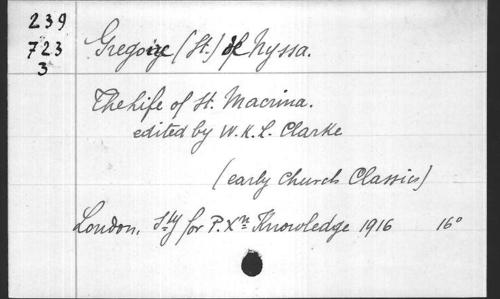 239
723
3
Gregoire (St.) of Nyssa.
The Life of St. Macrina.
edited by W.K.L. Clarke
(early Church Classics)
London. Sty for P. Xn Knowledge 1916 16°